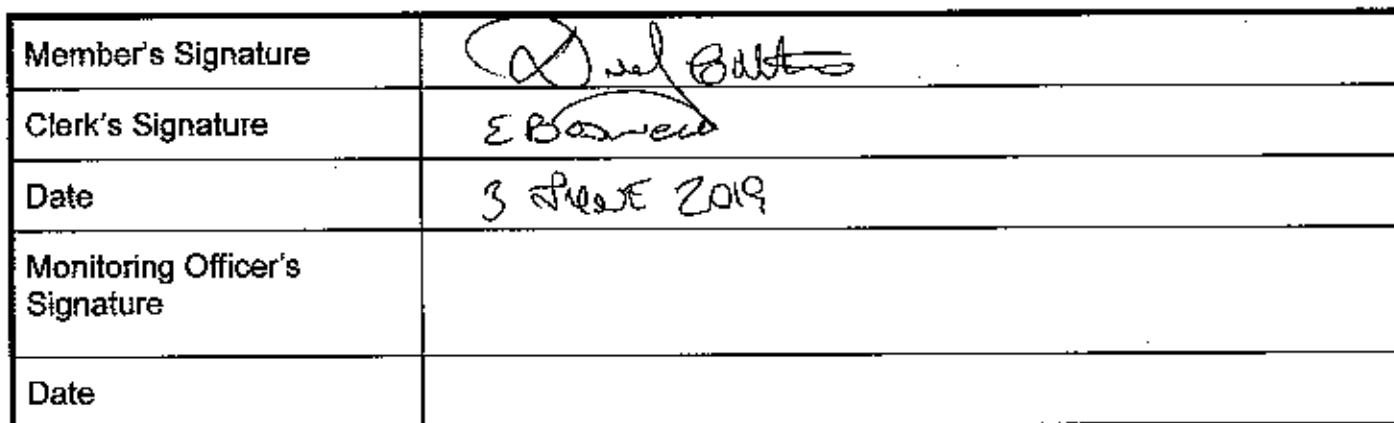 Member's Signature
Clerk's Signature E Boswell
Date 3 JUNE 2019
Monitoring Officer's
Signature
Date